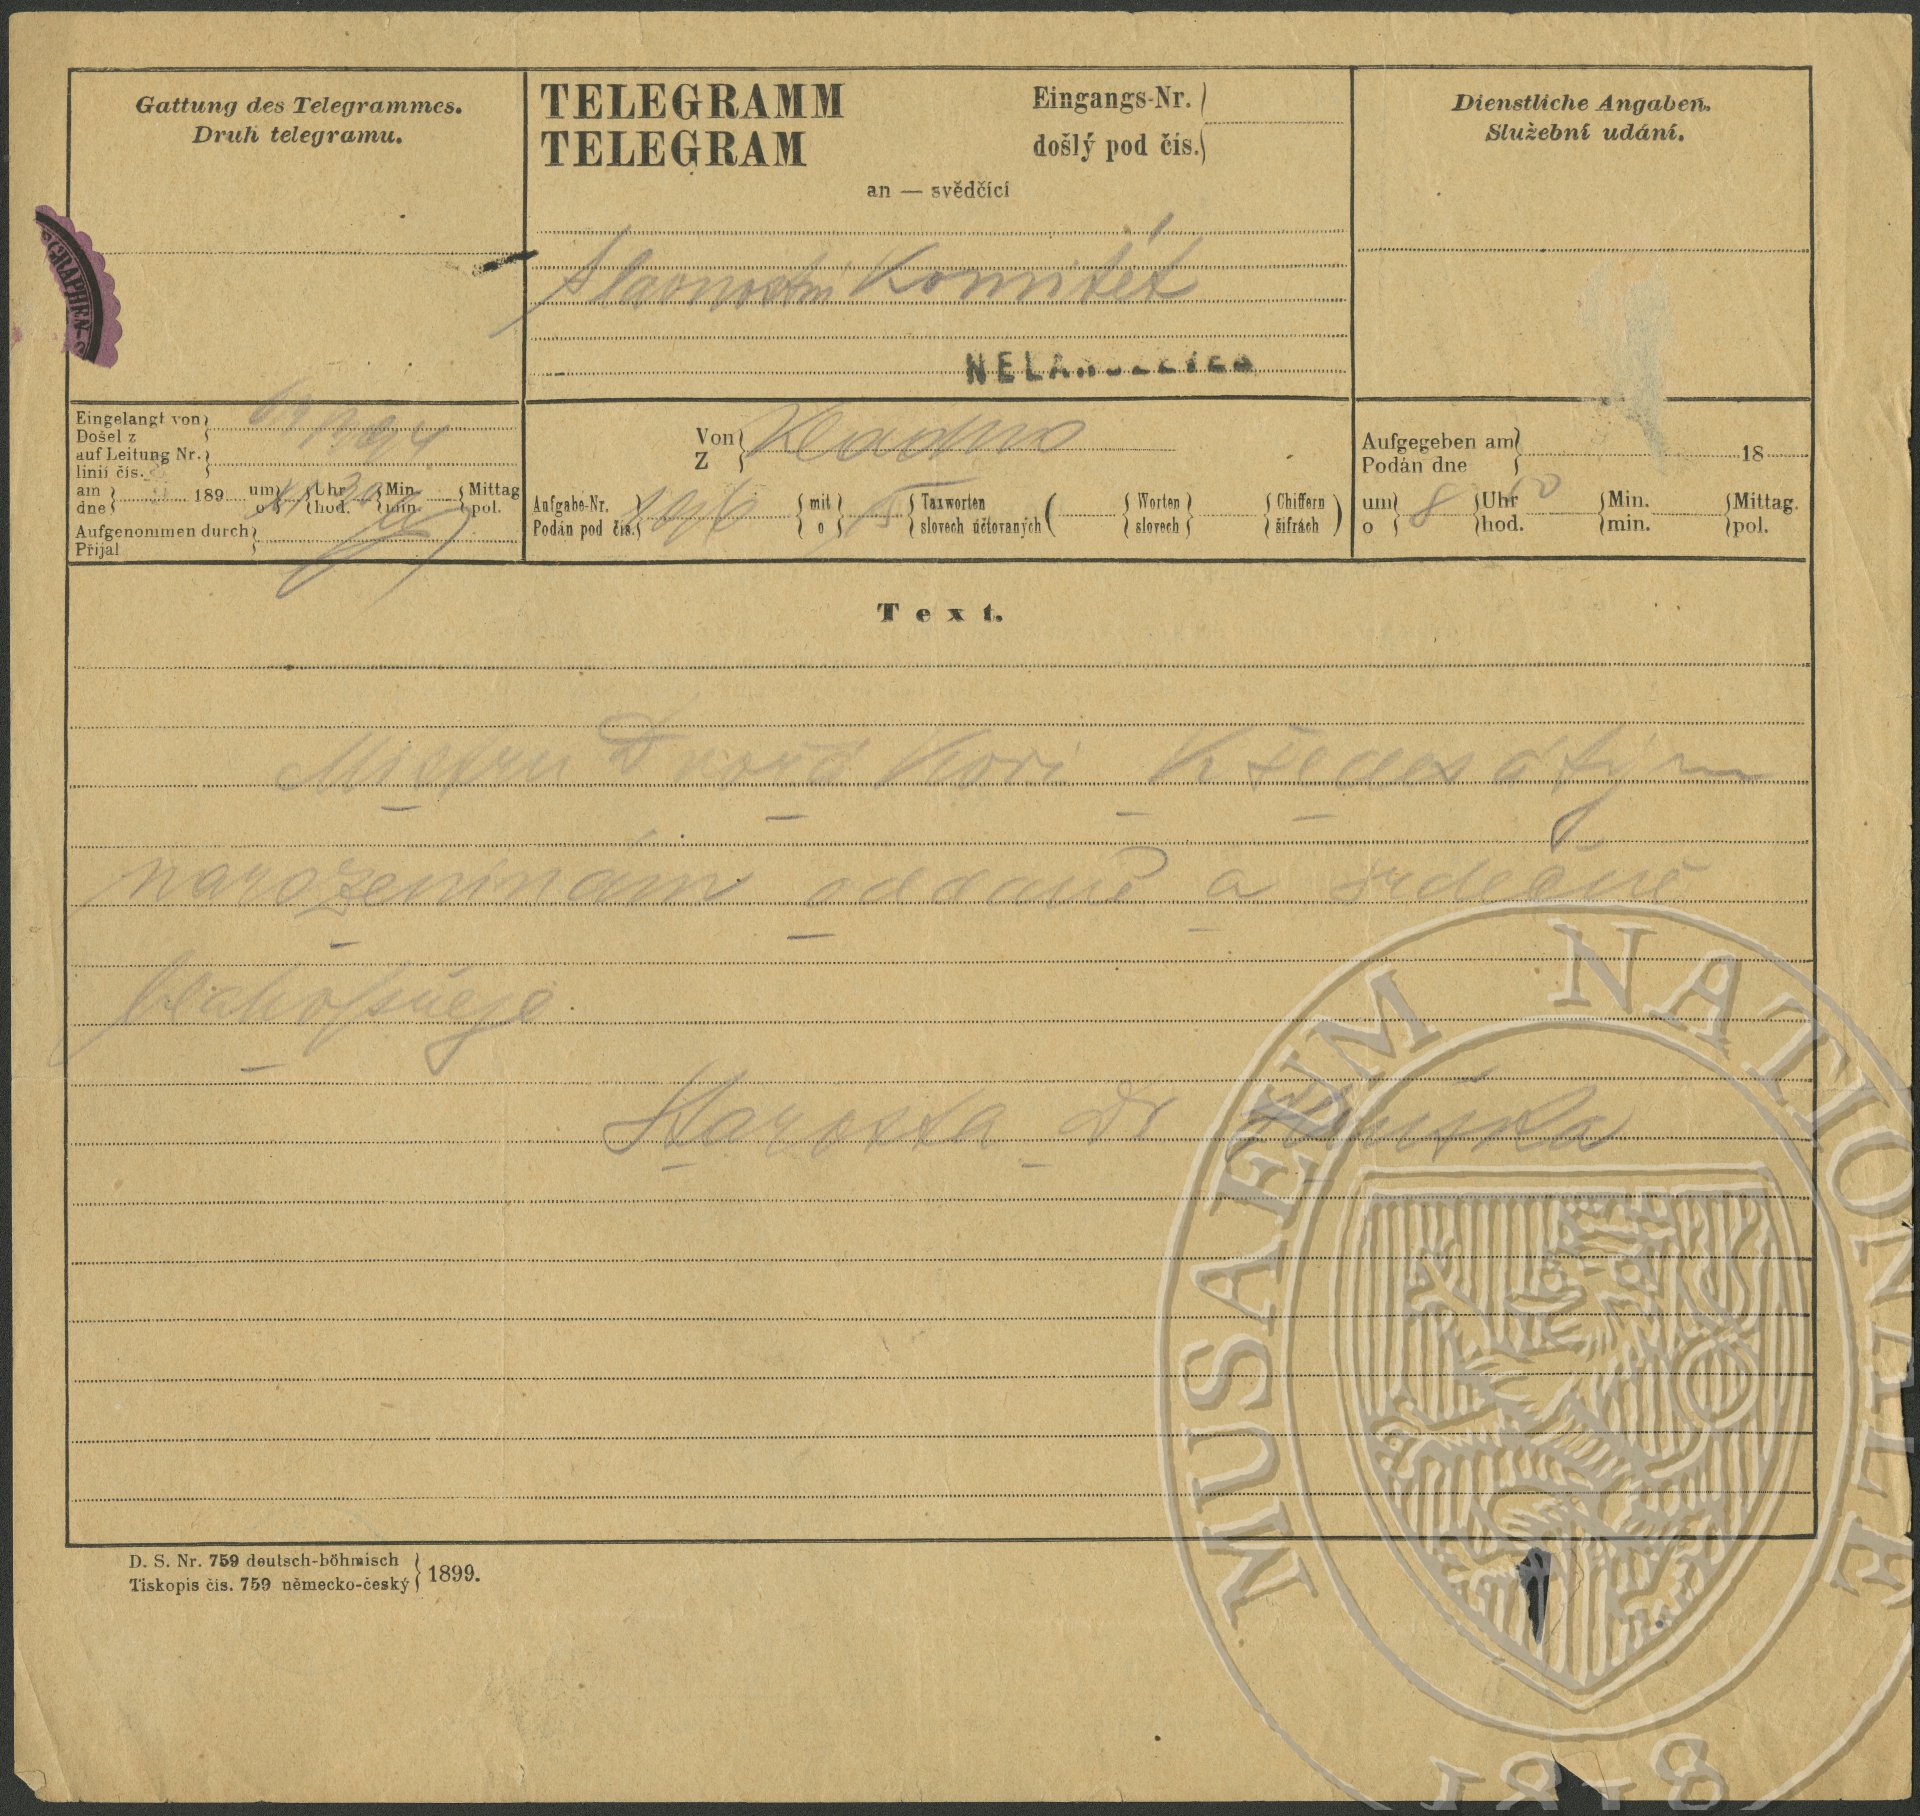 Gattung des Telegrammes.
Druh telegramu.
TELEGRAMM
TELEGRAM
Eingangs-Nr.
došlý pod čís.
an — svědčící
Dienstliche Angaben.
Služební udání.
GRAPHEN
Slavnostní Komitét
Eingelangt von
Došel z
auf Leitung Nr.
linii čís.
am 189 um Uhr 30 Min. Mittag
dne o hod. min. pol.
Aufgenommen durch
Přijal
Von Kladno
Z
Aufgabe-Nr. mit Taxworten Worten Chiffern
Podán pod čís. o 15 slovech účtovaných ( slovech šifrách )
Aufgegeben am 18
Podán dne
um 8 Uhr 50 Min. Mittag.
o hod. min. pol.
Text.
Mistru Dvořákovi K šedesátým
narozeninám oddaně a srdečně
blahopřeje
Starosta Dr Hruška
D. S. Nr. 759 deutsch-böhmisch
Tiskopis čís. 759 německo-český
1899.
MUSAEUM NATIONALE
1818